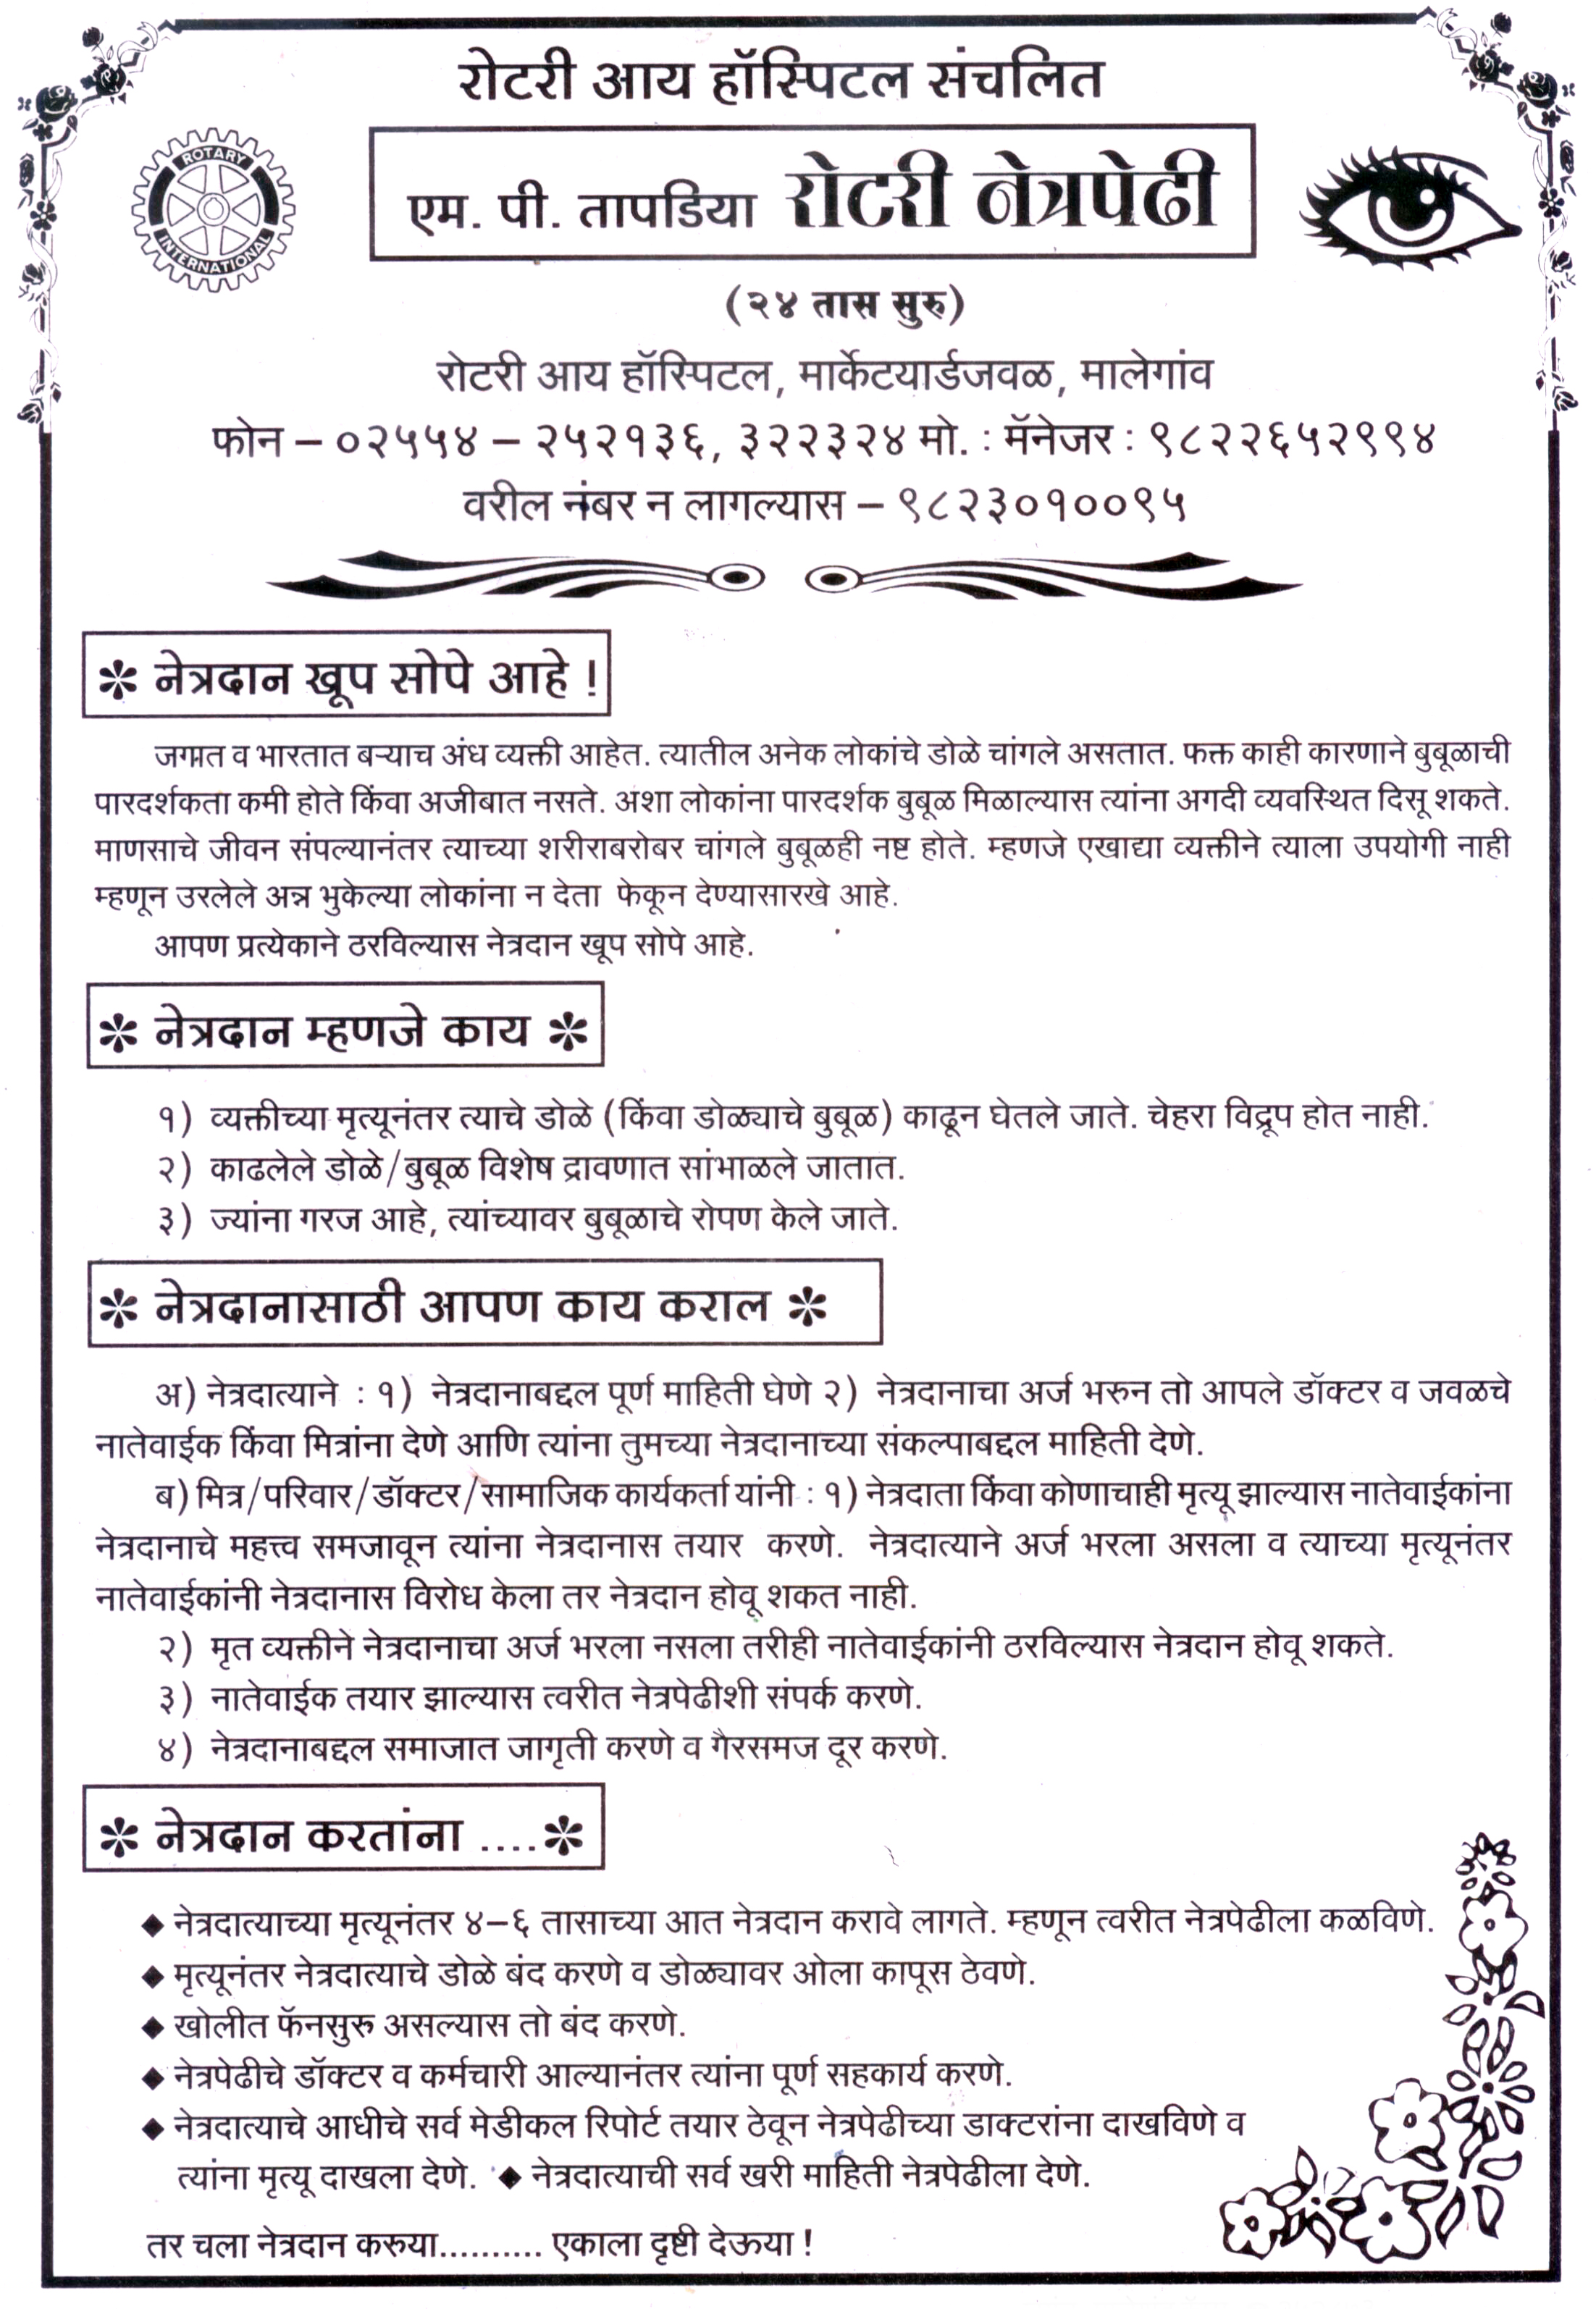 रोटरी आय हॉस्पिटल संचलित
ROTARY
INTERNATIONAL
एम. पी. तापडिया रोटरी नेत्रपेढी
(२४ तास सुरु)
रोटरी आय हॉस्पिटल, मार्केटयार्डजवळ, मालेगांव
फोन – ०२५५४ – २५२१३६, ३२२३२४ मो. : मॅनेजर : ९८२२६५२९९४
वरील नंबर न लागल्यास – ९८२३०१००९५
* नेत्रदान खूप सोपे आहे !
जगात व भारतात बऱ्याच अंध व्यक्ती आहेत. त्यातील अनेक लोकांचे डोळे चांगले असतात. फक्त काही कारणाने बुबूळाची
पारदर्शकता कमी होते किंवा अजीबात नसते. अशा लोकांना पारदर्शक बुबूळ मिळाल्यास त्यांना अगदी व्यवस्थित दिसू शकते.
माणसाचे जीवन संपल्यानंतर त्याच्या शरीराबरोबर चांगले बुबूळही नष्ट होते. म्हणजे एखाद्या व्यक्तीने त्याला उपयोगी नाही
म्हणून उरलेले अन्न भुकेल्या लोकांना न देता फेकून देण्यासारखे आहे.
आपण प्रत्येकाने ठरविल्यास नेत्रदान खूप सोपे आहे.
* नेत्रदान म्हणजे काय *
१) व्यक्तीच्या मृत्यूनंतर त्याचे डोळे (किंवा डोळ्याचे बुबूळ) काढून घेतले जाते. चेहरा विद्रूप होत नाही.
२) काढलेले डोळे/बुबूळ विशेष द्रावणात सांभाळले जातात.
३) ज्यांना गरज आहे, त्यांच्यावर बुबूळाचे रोपण केले जाते.
* नेत्रदानासाठी आपण काय कराल *
अ) नेत्रदात्याने : १) नेत्रदानाबद्दल पूर्ण माहिती घेणे २) नेत्रदानाचा अर्ज भरुन तो आपले डॉक्टर व जवळचे
नातेवाईक किंवा मित्रांना देणे आणि त्यांना तुमच्या नेत्रदानाच्या संकल्पाबद्दल माहिती देणे.
ब) मित्र/परिवार/डॉक्टर/सामाजिक कार्यकर्ता यांनी : १) नेत्रदाता किंवा कोणाचाही मृत्यू झाल्यास नातेवाईकांना
नेत्रदानाचे महत्त्व समजावून त्यांना नेत्रदानास तयार करणे. नेत्रदात्याने अर्ज भरला असला व त्याच्या मृत्यूनंतर
नातेवाईकांनी नेत्रदानास विरोध केला तर नेत्रदान होवू शकत नाही.
२) मृत व्यक्तीने नेत्रदानाचा अर्ज भरला नसला तरीही नातेवाईकांनी ठरविल्यास नेत्रदान होवू शकते.
३) नातेवाईक तयार झाल्यास त्वरीत नेत्रपेढीशी संपर्क करणे.
४) नेत्रदानाबद्दल समाजात जागृती करणे व गैरसमज दूर करणे.
* नेत्रदान करतांना ....*
◆ नेत्रदात्याच्या मृत्यूनंतर ४–६ तासाच्या आत नेत्रदान करावे लागते. म्हणून त्वरीत नेत्रपेढीला कळविणे.
◆ मृत्यूनंतर नेत्रदात्याचे डोळे बंद करणे व डोळ्यावर ओला कापूस ठेवणे.
◆ खोलीत फॅनसुरु असल्यास तो बंद करणे.
◆ नेत्रपेढीचे डॉक्टर व कर्मचारी आल्यानंतर त्यांना पूर्ण सहकार्य करणे.
◆ नेत्रदात्याचे आधीचे सर्व मेडीकल रिपोर्ट तयार ठेवून नेत्रपेढीच्या डाक्टरांना दाखविणे व
त्यांना मृत्यू दाखला देणे. ◆ नेत्रदात्याची सर्व खरी माहिती नेत्रपेढीला देणे.
तर चला नेत्रदान करुया.......... एकाला दृष्टी देऊया !